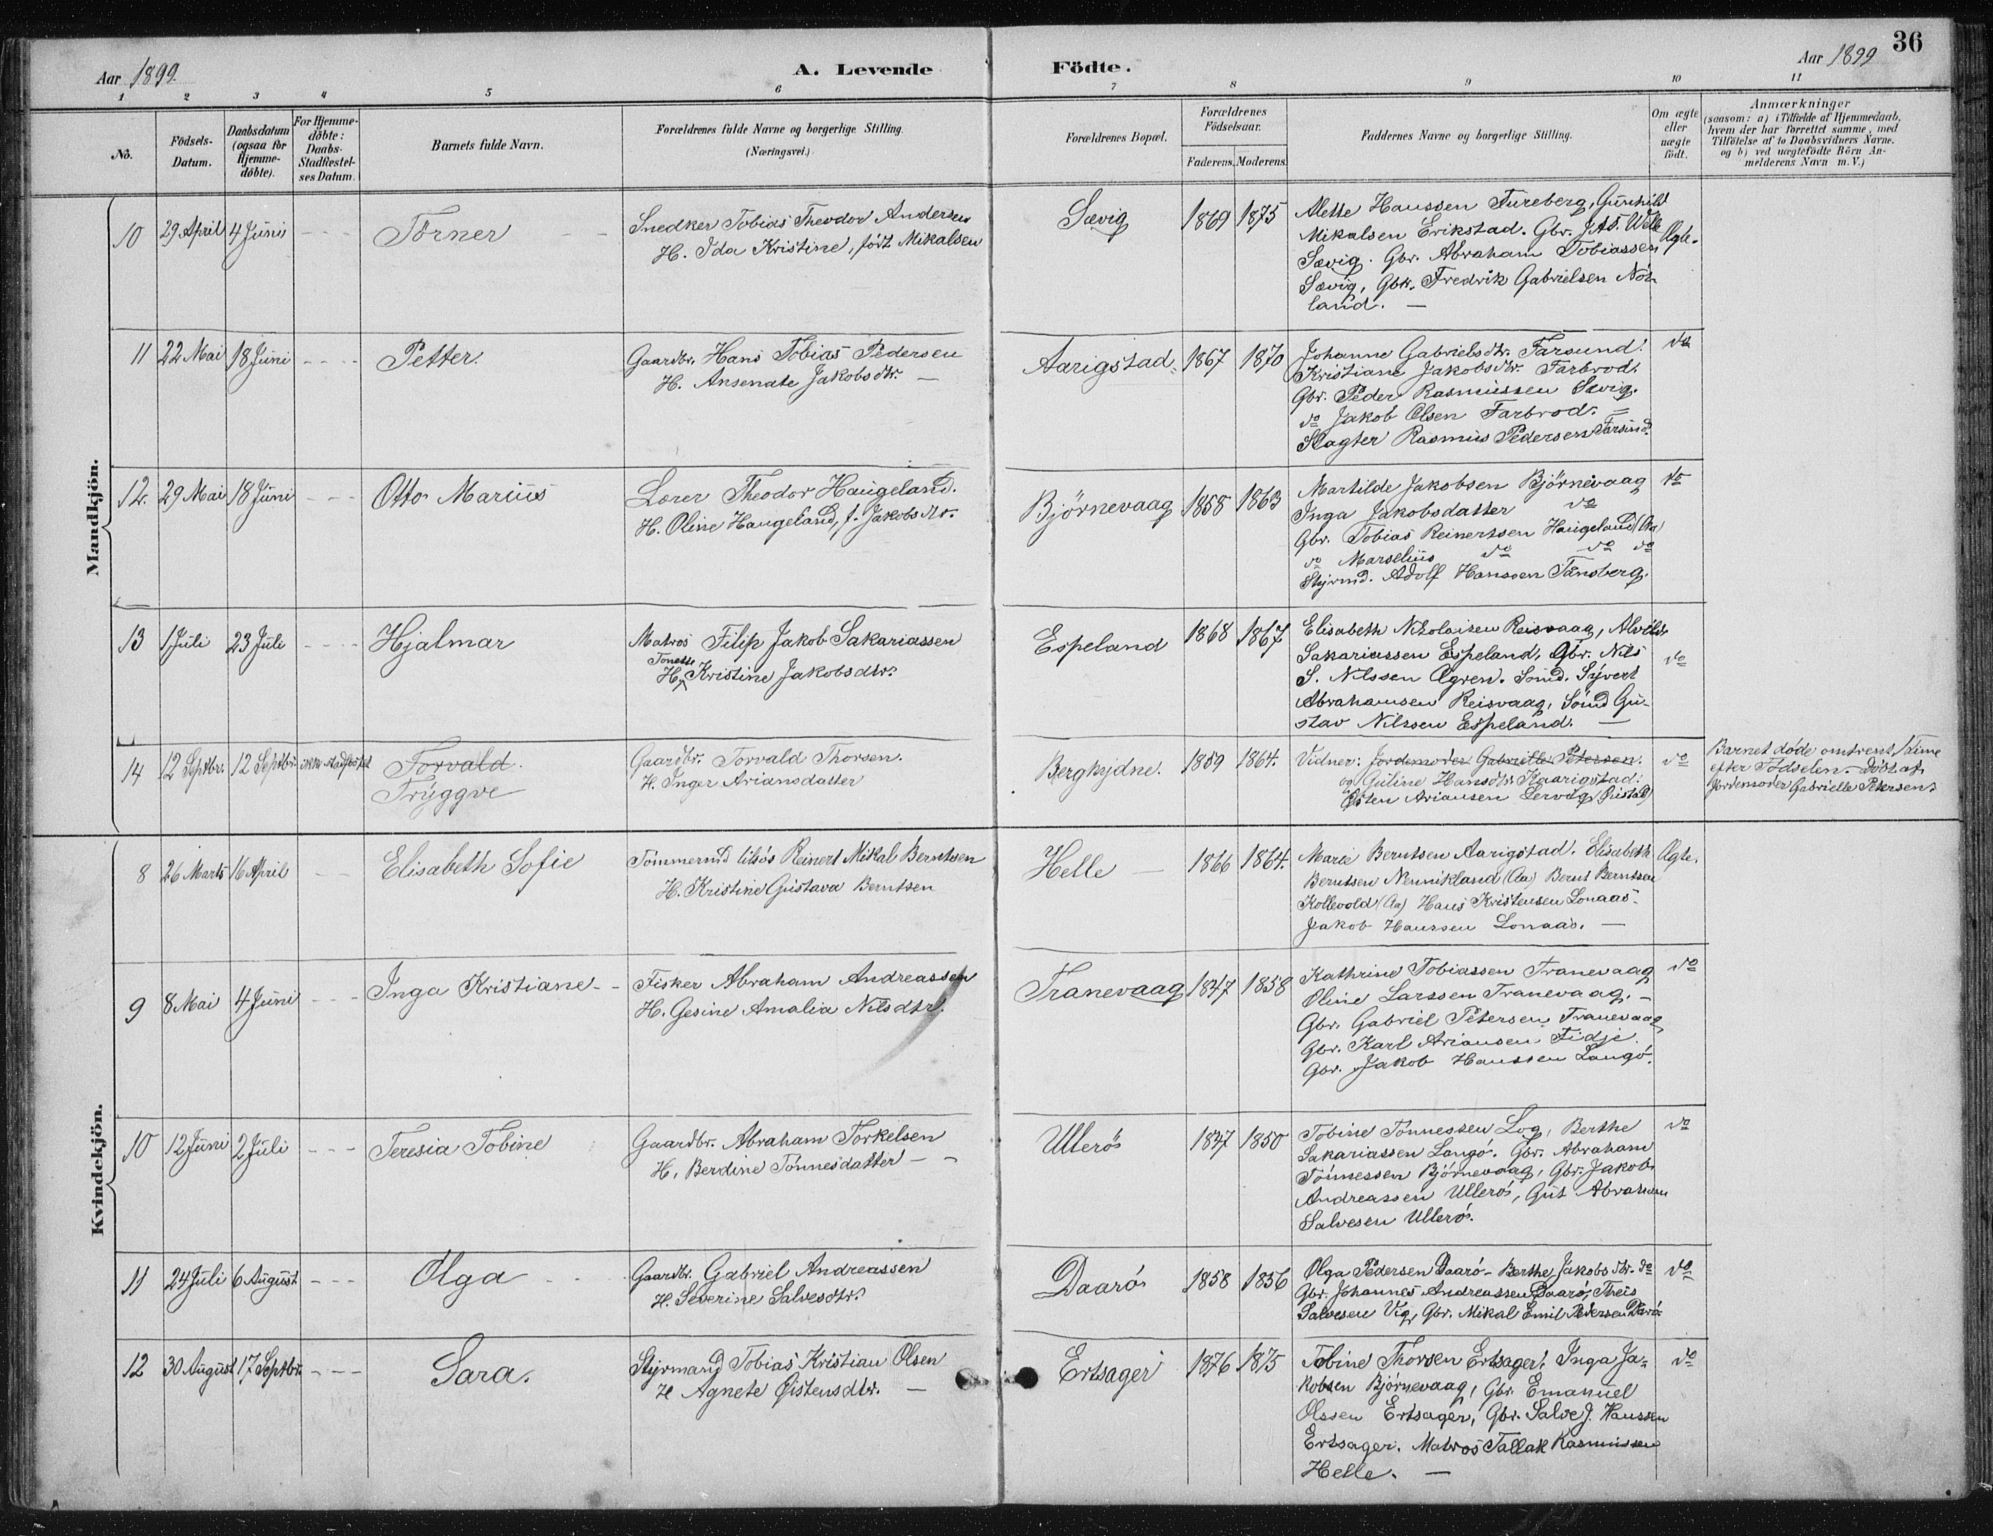 36
Aar 1899.
A. Levende Födte.
Aar 1899
1 2 3 4 5 6 7 8 9 10 11
No.
Födsels-
Datum.
Daabsdatum
(ogsaa for
Hjemme-
döbte).
For Hjemme-
döbte:
Daabs-
Stadfæstel-
ses Datum.
Barnets fulde Navn.
Forældrenes fulde Navne og borgerlige Stilling.
(Næringsvei.)
Forældrenes Bopæl.
Forældrenes
Födselsaar.
Faderens. Moderens.
Faddernes Navne og borgerlige Stilling.
Om ægte
eller
uægte
födt.
Anmærkninger
(saasom: a) i Tilfælde af Hjemmedaab,
hvem der har forrettet samme, med
Tilföielse af to Daabsvidners Navne,
og b) ved uægtefödte Börn An-
melderens Navn m. V.)
Mandkjön.
10 29 April 4 Juni Tørner
Snedker Tobias Theodor Andersen
H. Ida Kristine, født Mikalsen
Sævig 1869 1875
Alette Hanssen Fureberg, Gunhild
Mikalsen Erikstad. Gbr.
Sævig. Gbr. Abraham Tobiassen
Sævig, Gbr. Fredrik Gabrielsen Nor-
land. —
Ægte.
11 22 Mai 18 Juni Petter.
Gaardbr. Hans Tobias Pedersen
H. Ansenate Jakobsdtr. —
Aarigstad 1867 1870
Johanne Gabrielsdtr. Farsund.
Kristiane Jakobsdtr. Farbrod.
Gbr. Peder Rasmussen Sævig.
do Jakob Olsen Farbrod. —
Slagter Rasmus Pedersen Farsund.
do
12. 29 Mai 18 Juni Otto Marius
Lærer Theodor Haugeland.
H. Oline Haugeland, f. Jakobsdtr.
Bjørnevaag 1858 1863
Martilde Jakobsen Bjørnevaag
Inga Jakobsdatter do
Gbr. Tobias Reinertsen Haugeland (Aa)
do Marselius do do do
Styrmd. Adolf Hanssen Tønsberg.
do
13 1 Juli 23 Juli Hjalmar
Matros Filip Jakob Sakariassen
Tonette
H. Kristine Jakobsdtr.
Espeland 1868 1867
Elisabeth Nikolaisen Reisvaag, Alvilde
Sakariassen Espeland, Gbr. Nils
S. Nilssen Øgren. Sømd. Syvert
Abrahamsen Reisvaag, Sømd Gu-
stav Nilssen Espeland. —
do
14 12 Septbr. 12 Septbr. ikke stadfæstet
Torvald.
Tryggve
Gaardbr. Torvald Thorsen.
H. Inger Ariansdatter
Bergkjdne. 1859 1864.
Vidner: Jordemoder Gabrielle Petersen.
og Guline Hansdtr. Kaarigstad:
Østen Ariansen Lervig
do
Barnet døde omtrent 1 Time
efter Fødselen. Døbt af
Jordemoder Gabrielle Petersen.
Kvindekjön.
8 26 Marts 16 April Elisabeth Sofie
Tømmermd tilsøs Reinert Mikal Berntsen
H. Kristine Gustava Berntsen
Helle — 1866 1864.
Marie Berntsen Aarigstad. Elisabeth
Berntsen Nennikland (Aa) Bernt Berntsen
Kollevold (Aa) Hans Kristensen Lonaas.
Jakob Hanssen Lonaas. —
Ægte.
9 8 Mai 4 Juni Inga Kristiane
Fisker Abraham Andreassen
H. Gesine Amalia Nilsdtr.
Tranevaag 1847 1858
Kathrine Tobiassen Tranevaag
Oline Larssen Tranevaag. —
Gbr. Gabriel Petersen Tranevaag
Gbr. Karl Ariansen Fidje.
Gbr. Jakob Hanssen Langø.
do
10 12 Juni 2 Juli Teresia Tobine
Gaardbr. Abraham Torkelsen
H. Berdine Tønnesdatter — —
Ullerø 1847 1850
Tobine Tønnessen Log, Berthe
Sakariassen Langø. Gbr. Abraham
Tønnessen Bjørnevaag, Gbr. Jakob
Andreassen Ullerø, Gut Abraham
Salvesen Ullerø.
do
11 24 Juli 6 August Olga
Gaardbr. Gabriel Andreassen
H. Severine Salvesdtr.
Daarø 1858 1856
Olga Pedersen Daarø - Berthe Jakobsdtr. do
Gbr. Johannes Andreassen Daarø, Theis
Salvesen Vig, Gbr. Mikal Emil Pedersen Darø
do
12 30 August 17 Septbr. Sara.
Styrmand Tobias Kristian Olsen
H Agnete Øistensdtr. —
Ertsager 1876 1875
Tobine Thorsen Ertsager. Inga Ja-
kobsen Bjørnevaag, Gbr. Emanuel
Olssen Ertsager, Gbr. Salve J. Hanssen
Ertsager. Matros Tallak Rasmussen
Helle. —
do